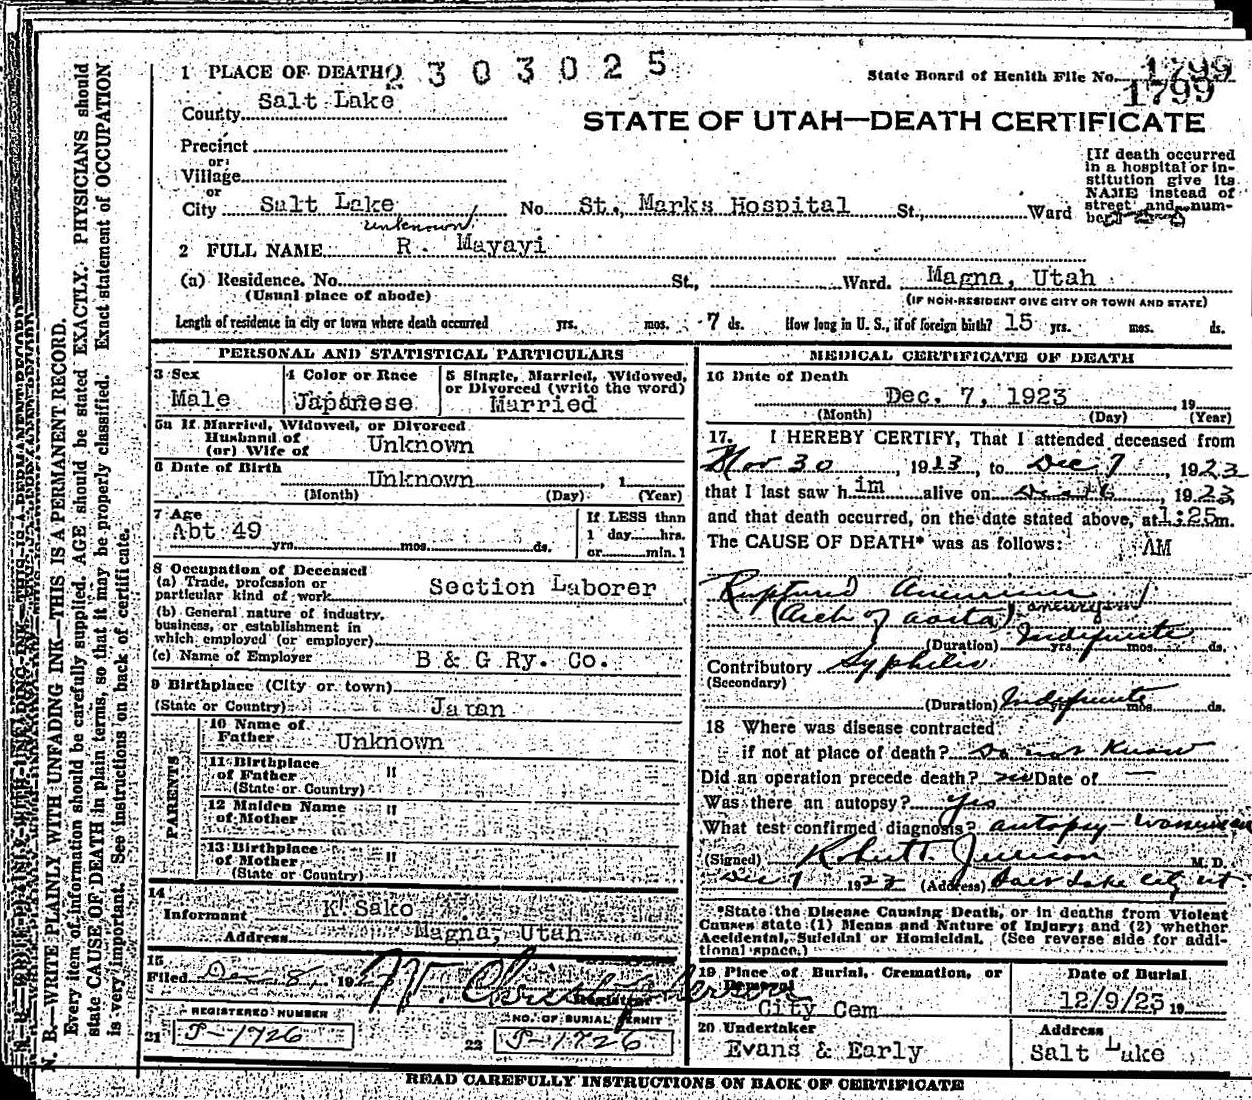 1 PLACE OF DEATH 2303025
State Board of Health File No. 1799
1799
County Salt Lake
STATE OF UTAH—DEATH CERTIFICATE
Precinct
or
Village
or
City Salt Lake No. St., Marks Hospital St., Ward
[If death occurred in a hospital or institution give its NAME instead of street and number.]
unknown
2 FULL NAME R. Mayayi
(a) Residence. No. St., Ward. Magna, Utah
(Usual place of abode) (IF NON-RESIDENT GIVE CITY OR TOWN AND STATE)
Length of residence in city or town where death occurred yrs. mos. 7 ds. How long in U. S., if of foreign birth? 15 yrs. mos. ds.
PERSONAL AND STATISTICAL PARTICULARS
3 Sex
Male
4 Color or Race
Japanese
5 Single, Married, Widowed,
or Divorced (write the word)
Married
5a If Married, Widowed, or Divorced
Husband of
(or) Wife of Unknown
6 Date of Birth Unknown, 1
(Month) (Day) (Year)
7 Age
Abt 49
yrs. mos. ds.
If LESS than
1 day hrs.
or min. 1
8 Occupation of Deceased
(a) Trade, profession or
particular kind of work Section Laborer
(b) General nature of industry,
business, or establishment in
which employed (or employer)
(c) Name of Employer B & G Ry. Co.
9 Birthplace (City or town)
(State or Country) Japan
PARENTS
10 Name of
Father Unknown
11 Birthplace
of Father "
(State or Country)
12 Maiden Name
of Mother "
13 Birthplace
of Mother "
(State or Country)
14
Informant K. Sako
Address Magna, Utah
15
Filed Dec 8, 192
Registrar
REGISTERED NUMBER
21 P-1726
NO. OF BURIAL PERMIT
22 P-1726
MEDICAL CERTIFICATE OF DEATH
16 Date of Death
Dec. 7, 1923, 19
(Month) (Day) (Year)
17. I HEREBY CERTIFY, That I attended deceased from
Nov 30, 1923, to Dec 7, 1923
that I last saw him alive on Dec 6, 1923
and that death occurred, on the date stated above, at 1:25 m.
The CAUSE OF DEATH* was as follows: AM
Ruptured Aneurism
(Arch of aorta) aneurysm
(Duration) Indefinite yrs. mos. ds.
Contributory Syphilis
(Secondary)
(Duration) Indefinite mos. ds.
18 Where was disease contracted
if not at place of death? Do not Know
Did an operation precede death? no Date of —
Was there an autopsy? Yes
What test confirmed diagnosis? autopsy - Wasserman
(Signed) Robert T. M. D.
Dec 7 1923 (Address) Salt Lake City Ut.
*State the Disease Causing Death, or in deaths from Violent
Causes state (1) Means and Nature of Injury; and (2) whether
Accidental, Suicidal or Homicidal. (See reverse side for additional space.)
19 Place of Burial, Cremation, or
Removal
City Cem
Date of Burial
12/9/23 19
20 Undertaker
Evans & Early
Address
Salt Lake
READ CAREFULLY INSTRUCTIONS ON BACK OF CERTIFICATE
N. B.—WRITE PLAINLY WITH UNFADING INK—THIS IS A PERMANENT RECORD.
Every item of information should be carefully supplied. AGE should be stated EXACTLY. PHYSICIANS should
state CAUSE OF DEATH in plain terms, so that it may be properly classified. Exact statement of OCCUPATION
is very important. See instructions on back of certificate.